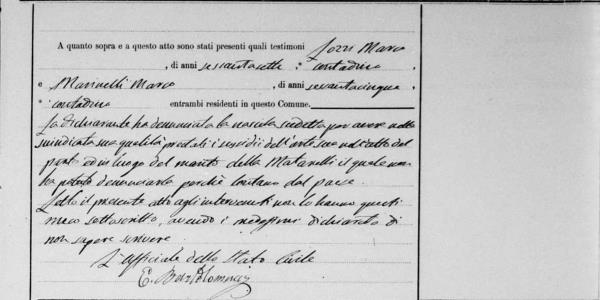 A quanto sopra e a questo atto sono stati presenti quali testimoni Iozzi Marco
, di anni sessantasette, contadino
e Marinelli Marco, di anni sessantacinque
, contadino entrambi residenti in questo Comune.
La dichiarante ha denunciato la nascita suddetta per avere nella
suindicata sua qualità prestati i sussidii dell'arte sua nell'atto del
parto ed in luogo del marito della Matarelli il quale non
ha potuto denunciarla perchè lontano dal paese.
Letto il presente atto agli intervenuti non lo hanno questi
meco sottoscritto, avendo i medesimi dichiarato di
non sapere scrivere
L'Uffiziale dello Stato Civile
E. Bartolomucci